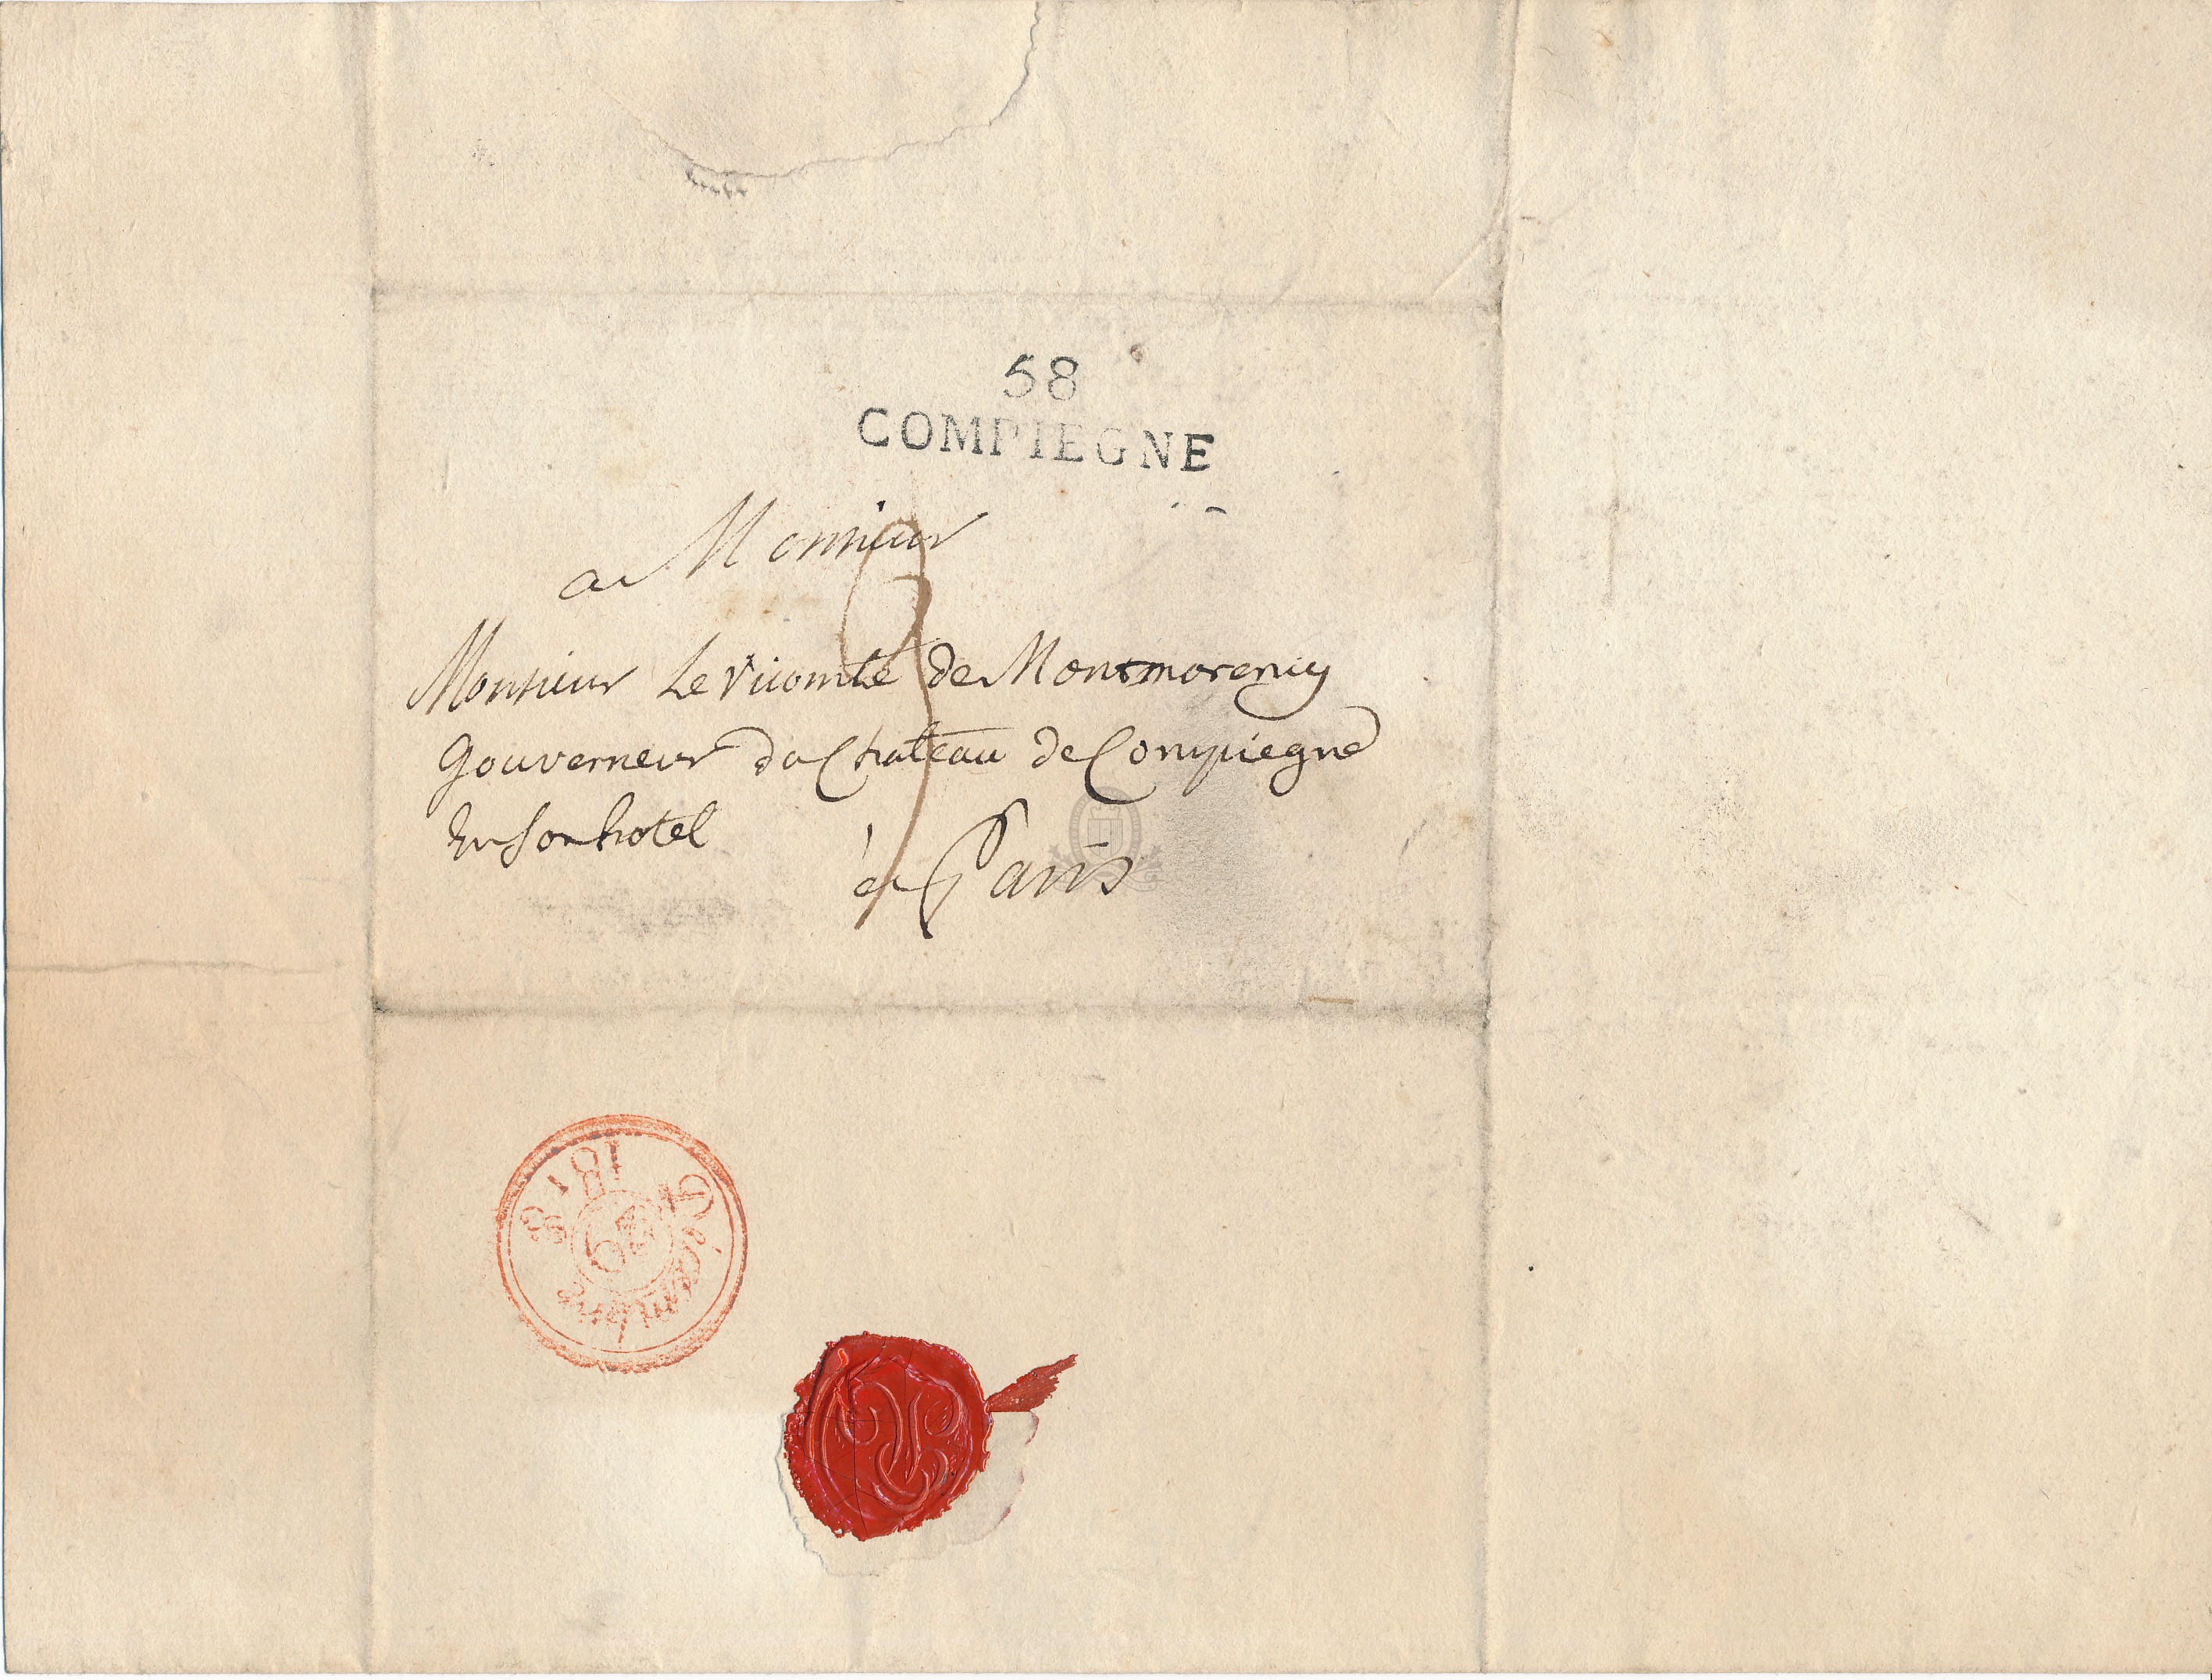 58
COMPIEGNE
a Monsieur
Monsieur Le Vicomte de Montmorency
Gouverneur du Chateau de Compiegne
En son hotel
à Paris
3